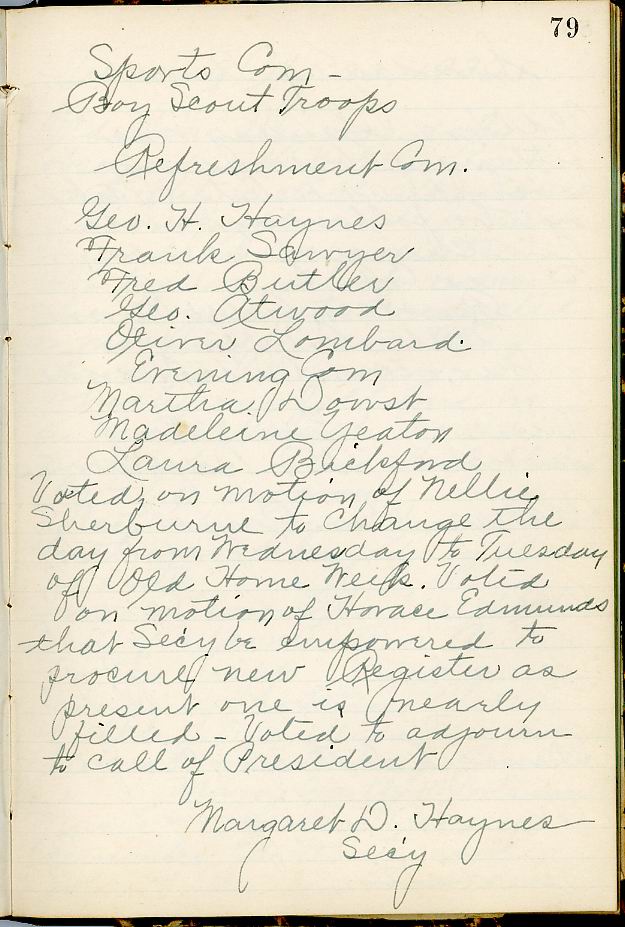 79
Sports Com -
Boy Scout Troops
Refreshment Com.
Geo. H. Haynes
Frank Sawyer
Fred Butler
Geo. Atwood
Oliver Lombard.
Evening Com
Martha Dowst
Madeleine Yeaton
Laura Bickford
Voted, on motion of Nellie
Sherburne to change the
day from Wednesday to Tuesday
of Old Home Week. Voted
on motion of Horace Edmunds
that Secy be empowered to
procure new Register as
present one is nearly
filled - Voted to adjourn
to call of President
Margaret D. Haynes
Secy